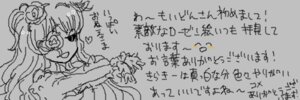 いっぱい
わ〜もいどんさん初めまして!
素敵なローゼン絵いつも拝見して
おります〜
お言葉ありがとうございます!
きらきーは真っ白な分色々やりがい
あっていいですよね〜
コメ
ありがとう